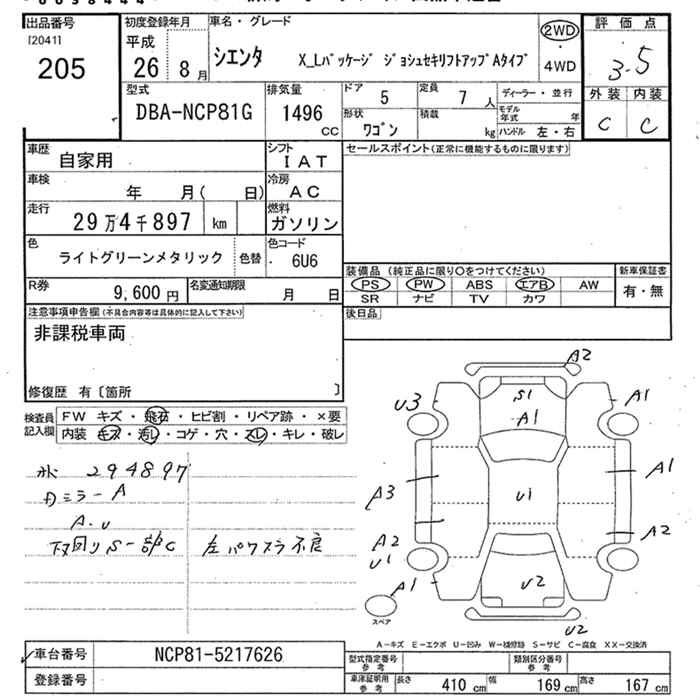 出品番号
[20411
205
初度登録年月
平成
26 8 月
車名・グレード
シエンタ X_Lパッケージ ジョシュセキリフトアップAタイプ
2WD
・
4WD
評価点
3.5
外装 内装
C C
型式
DBA-NCP81G
排気量
1496
CC
ドア 5
定員 7 人
形状 ワゴン
積載 kg
ディーラー・並行
モデル年式 年
ハンドル 左・右
車歴 自家用
シフト IAT
車検 年 月( 日)
冷房 AC
走行 29万4千897 km
燃料 ガソリン
色 ライトグリーンメタリック 色替
色コード 6U6
R券 9,600 円
名変通知期限 月 日
セールスポイント(正常に機能するものに限ります)
装備品 (純正品に限り○をつけてください)
新車保証書
PS PW ABS エアB AW
SR ナビ TV カワ
有・無
後日品
注意事項申告欄(不具合内容等は具体的に記入して下さい)
非課税車両
修復歴 有〔箇所 〕
検査員記入欄
FW キズ・飛石・ヒビ割・リペア跡・×要
内装 キズ・汚レ・コゲ・穴・スレ・キレ・破レ
294897
ミラーA
A.U
下回りS一部C 左パワスラ不良
A2
U3
S1
A1
A1
A1
A3
U1
A2
A2
U1
A1
U2
U2
スペア
A-キズ E-エクボ U-凹み W-補修跡 S-サビ C-腐食 XX-交換済
車台番号 NCP81-5217626
登録番号
型式指定番号 参考
類別区分番号 参考
車庫証明用 参考
長さ 410 cm 幅 169 cm 高さ 167 cm